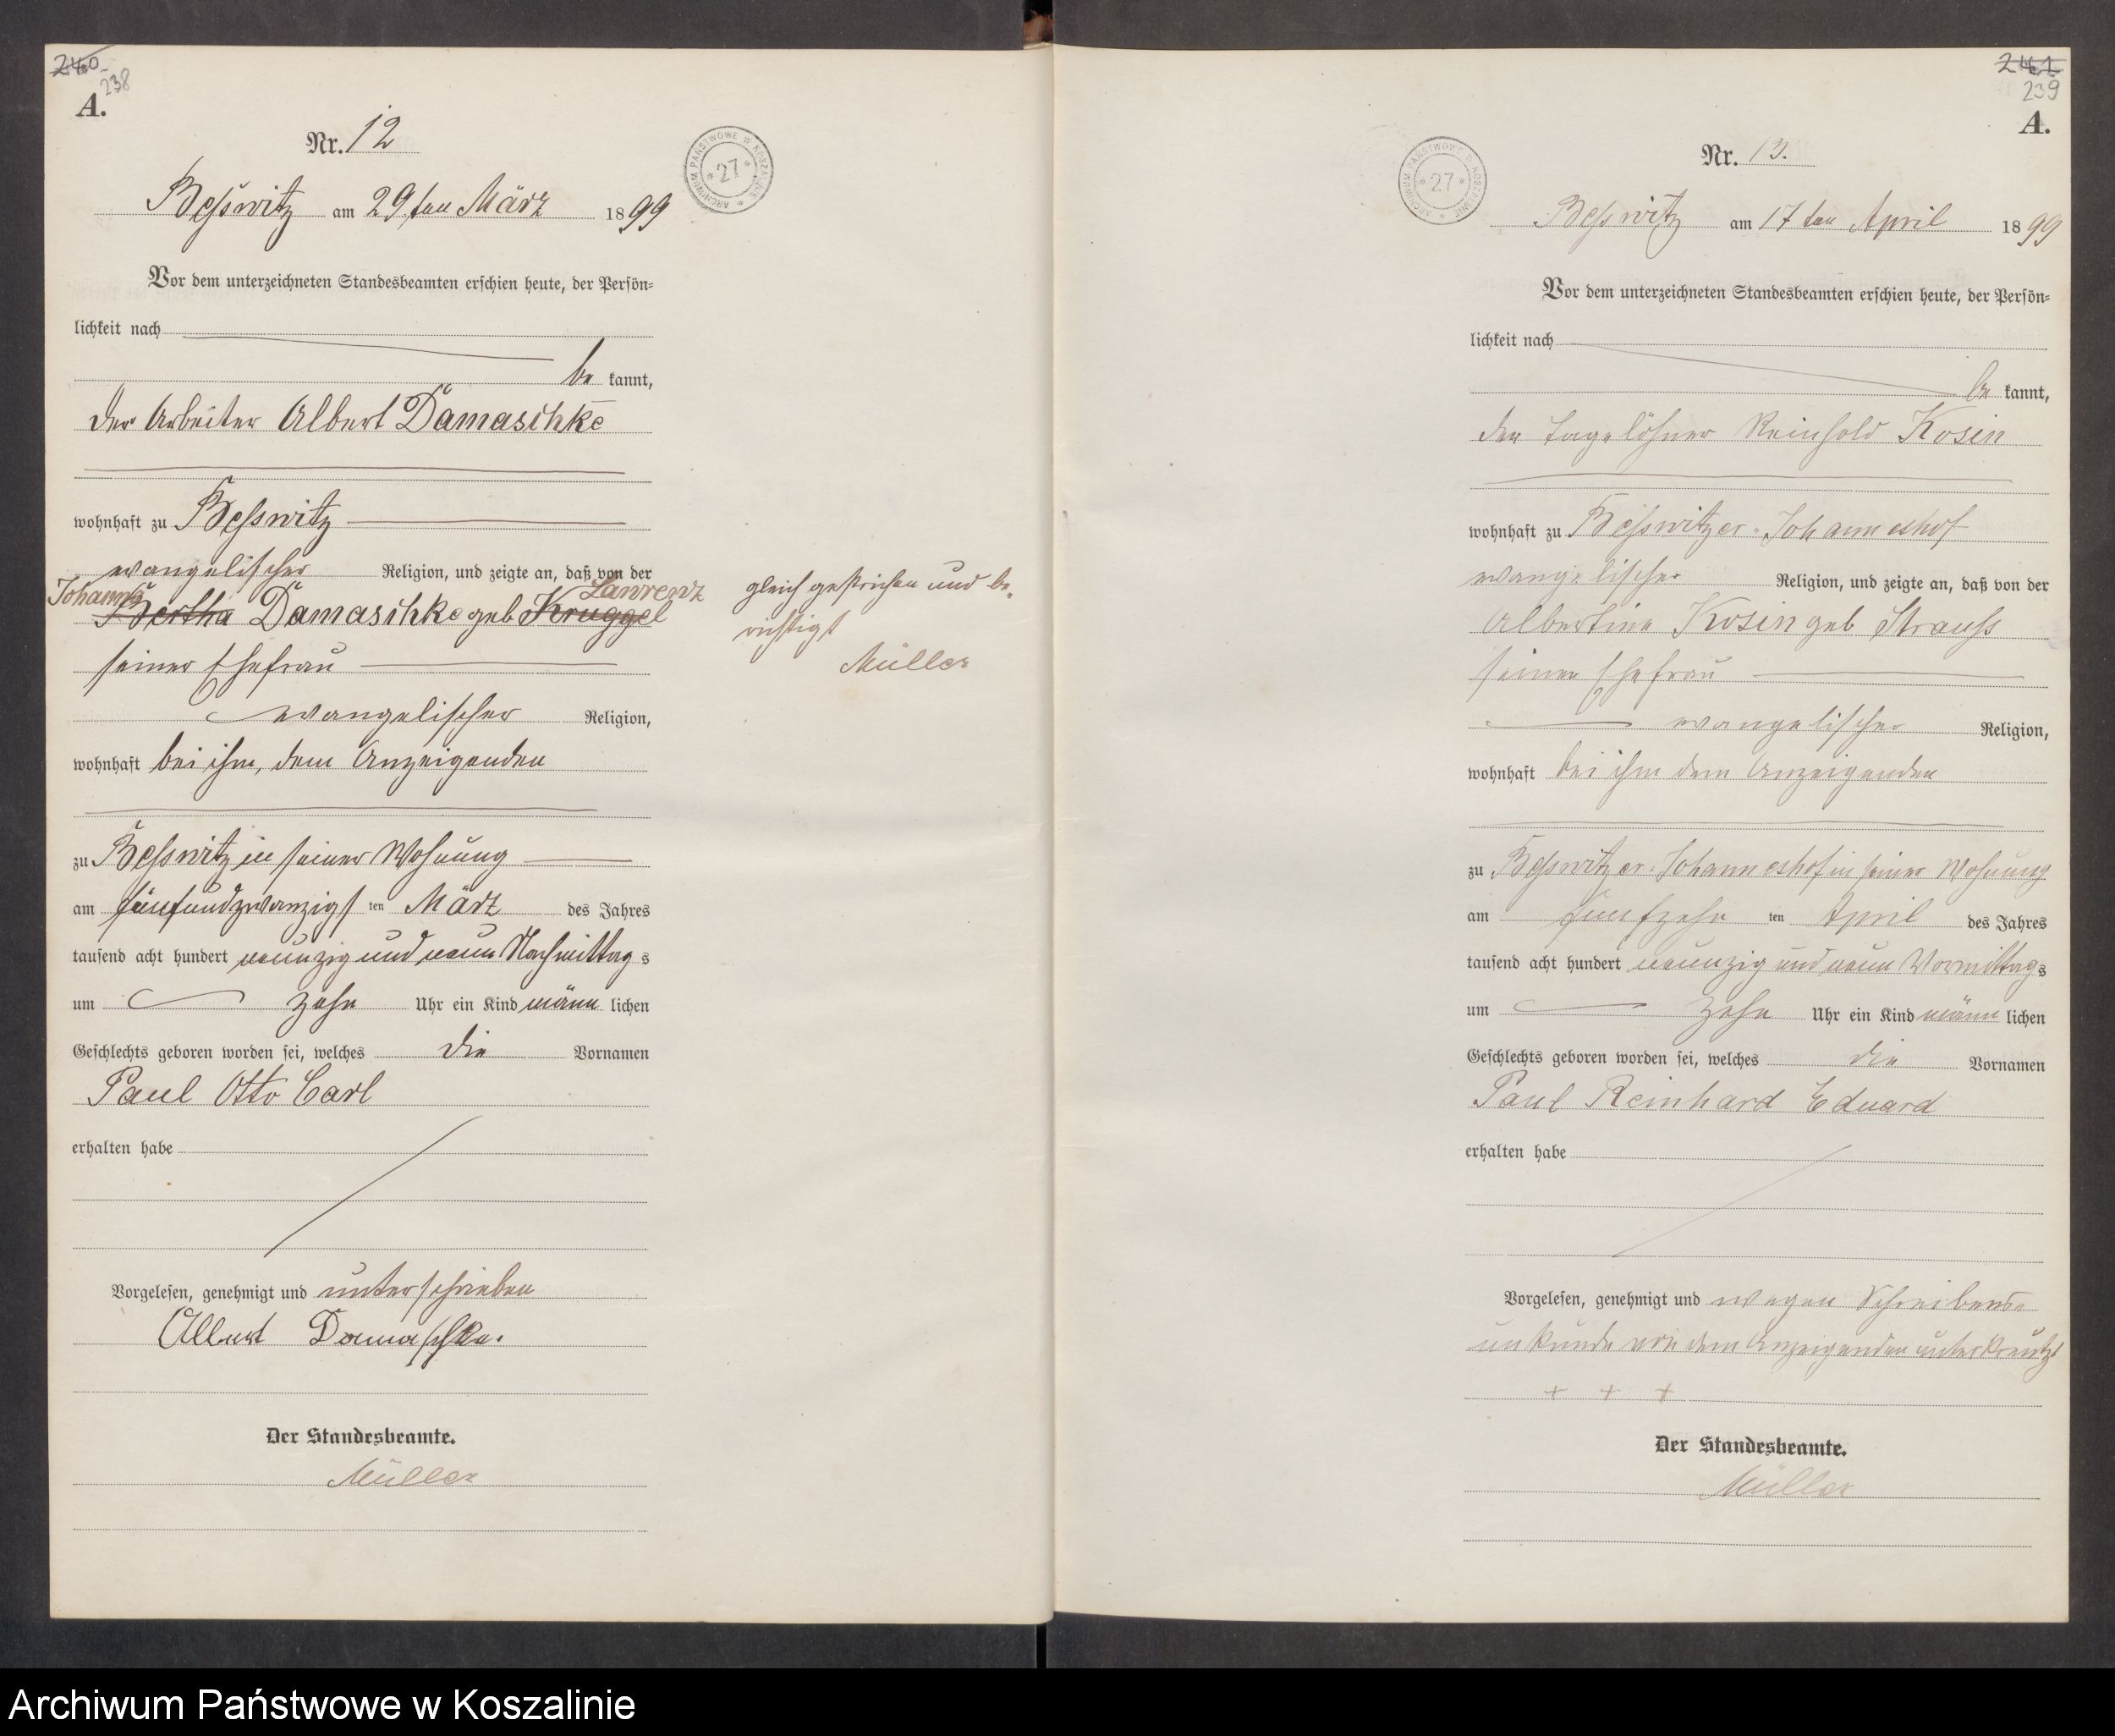 240
238
A.
Nr. 12
ARCHIWUM PAŃSTWOWE W KOSZALINIE * 27 *
Beßwitz am 29 ten März 1899
Vor dem unterzeichneten Standesbeamten erschien heute, der Persön=
lichkeit nach
be kannt,
der Arbeiter Albert Damaschke
wohnhaft zu Beßwitz
evangelischer Religion, und zeigte an, daß von der
Johanna Lawrenz
Bertha Damaschke geb Kruggel
seiner Ehefrau
evangelischer Religion,
wohnhaft bei ihm, dem Anzeigenden
zu Beßwitz in seiner Wohnung
am fünfundzwanzigs ten März des Jahres
tausend acht hundert neunzig und neun Nachmittag s
um zehn Uhr ein Kind männ lichen
Geschlechts geboren worden sei, welches die Vornamen
Paul Otto Carl
erhalten habe
Vorgelesen, genehmigt und unterschrieben
Albert Damaschke.
Der Standesbeamte.
Müller
gleich gestrichen und be-
richtigt
Müller
241
239
A.
Nr. 13.
ARCHIWUM PAŃSTWOWE W KOSZALINIE * 27 *
Beßwitz am 17 ten April 1899
Vor dem unterzeichneten Standesbeamten erschien heute, der Persön=
lichkeit nach
be kannt,
der Tagelöhner Reinhold Kosin
wohnhaft zu Beßwitzer-Johanneshof
evangelischer Religion, und zeigte an, daß von der
Albertine Kosin geb Strauß
seiner Ehefrau
evangelischer Religion,
wohnhaft bei ihm dem Anzeigenden
zu Beßwitzer-Johanneshof in seiner Wohnung
am fünfzehn ten April des Jahres
tausend acht hundert neunzig und neun Vormittag s
um zehn Uhr ein Kind männ lichen
Geschlechts geboren worden sei, welches die Vornamen
Paul Reinhard Eduard
erhalten habe
Vorgelesen, genehmigt und wegen Schreibens-
unkunde von dem Anzeigenden unterkreutzt
+ + +
Der Standesbeamte.
Müller
Archiwum Państwowe w Koszalinie